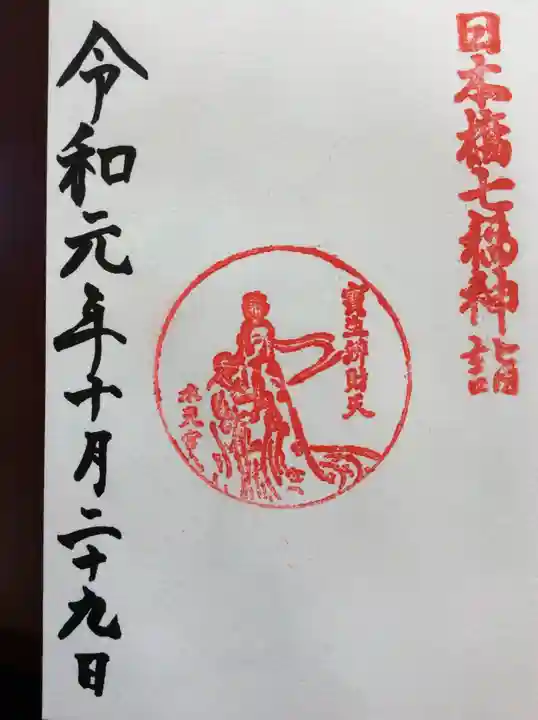 日本橋七福神詣
寳生辨財天
水天宮
令和元年十月二十九日